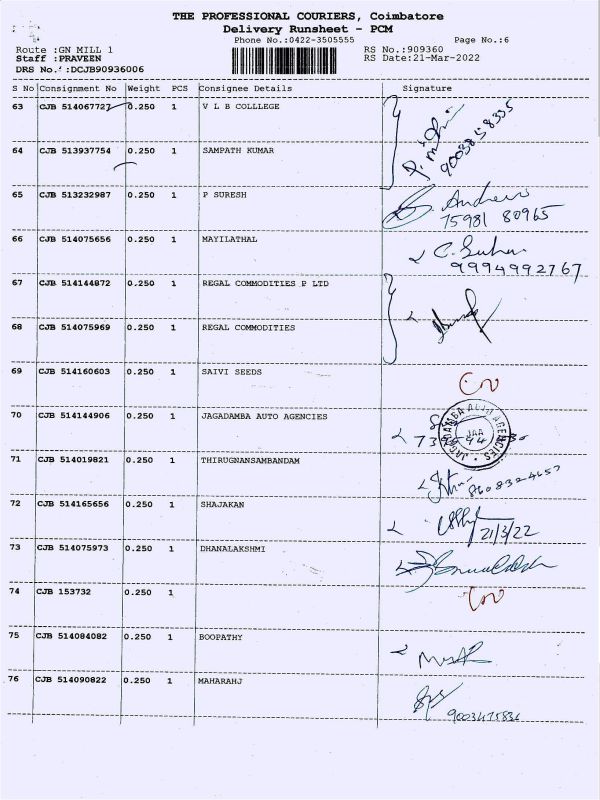 THE PROFESSIONAL COURIERS, Coimbatore
Delivery Runsheet - PCM
Phone No.:0422-3505555 Page No.:6
Route :GN MILL 1 RS No.:909360
Staff :PRAVEEN RS Date:21-Mar-2022
DRS No.:DCJB90936006
S No Consignment No Weight PCS Consignee Details Signature
63 CJB 514067727 0.250 1 V L B COLLLEGE
9003858335
64 CJB 513937754 0.250 1 SAMPATH KUMAR
65 CJB 513232987 0.250 1 P SURESH Andrews
75981 80965
66 CJB 514075656 0.250 1 MAYILATHAL
9994992767
67 CJB 514144872 0.250 1 REGAL COMMODITIES P LTD
68 CJB 514075969 0.250 1 REGAL COMMODITIES
69 CJB 514160603 0.250 1 SAIVI SEEDS
70 CJB 514144906 0.250 1 JAGADAMBA AUTO AGENCIES
JAGADAMBA AUTO AGENCIES
JAA
71 CJB 514019821 0.250 1 THIRUGNANSAMBANDAM
8608324657
72 CJB 514165656 0.250 1 SHAJAKAN
21/3/22
73 CJB 514075973 0.250 1 DHANALAKSHMI
74 CJB 153732 0.250 1
75 CJB 514084082 0.250 1 BOOPATHY
76 CJB 514090822 0.250 1 MAHARAHJ
9003475836